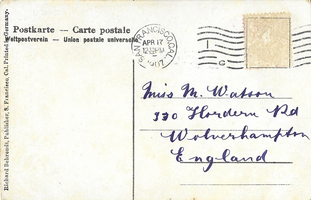 Postkarte — Carte postale
Weltpostverein — Union postale universelle
SAN FRANCISCO, CAL.
APR 17
12-30PM
Miss M. Watson
330 Hordern Rd
Wolverhampton
England
Richard Behrendt, Publisher, S. Francisco, Cal. Printed in Germany.